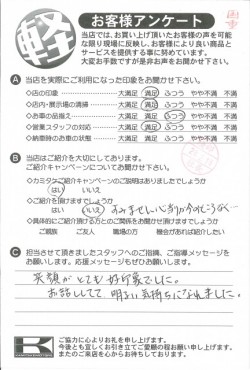 軽
お客様アンケート
当店では、お買い上げ頂いたお客様の声を可能
な限り現場に反映し、お客様により良い商品と
サービスを提供する事に努めています。
大変お手数ですが是非お声をお聞かせ下さい。
A 当店を実際にご利用になった印象をお聞かせ下さい。
◇店の印象 大満足 満足 ふつう やや不満 不満
◇店内・展示場の清掃 大満足 満足 ふつう やや不満 不満
◇お車の品揃え 大満足 満足 ふつう やや不満 不満
◇営業スタッフの対応 大満足 満足 ふつう やや不満 不満
◇納車時のお車の状態 大満足 満足 ふつう やや不満 不満
B 当店はご紹介を大切にしております。
ご紹介キャンペーンについてお聞かせ下さい。
◇カミタケご紹介キャンペーンのご説明はありましたでしょうか
はい いいえ
◇ご紹介を頂けますでしょうか
はい いいえ
◇具体的にご紹介頂ける方とのご関係をお聞かせ頂けますでしょうか
ご親族 ご友人 職場の方 機会があれば紹介したい
C 担当させて頂きましたスタッフへのご指摘、ご指導メッセージを
お願いします。応援メッセージもぜひお願いします。
笑顔がとても好印象でした。
お話ししてて、明るい気持ちになれました。
ご協力に心よりお礼を申し上げます。
今後とも宜しくお引き立てご愛顧の程お願い申し上げます。
またのご来店を心からお待ちしております。